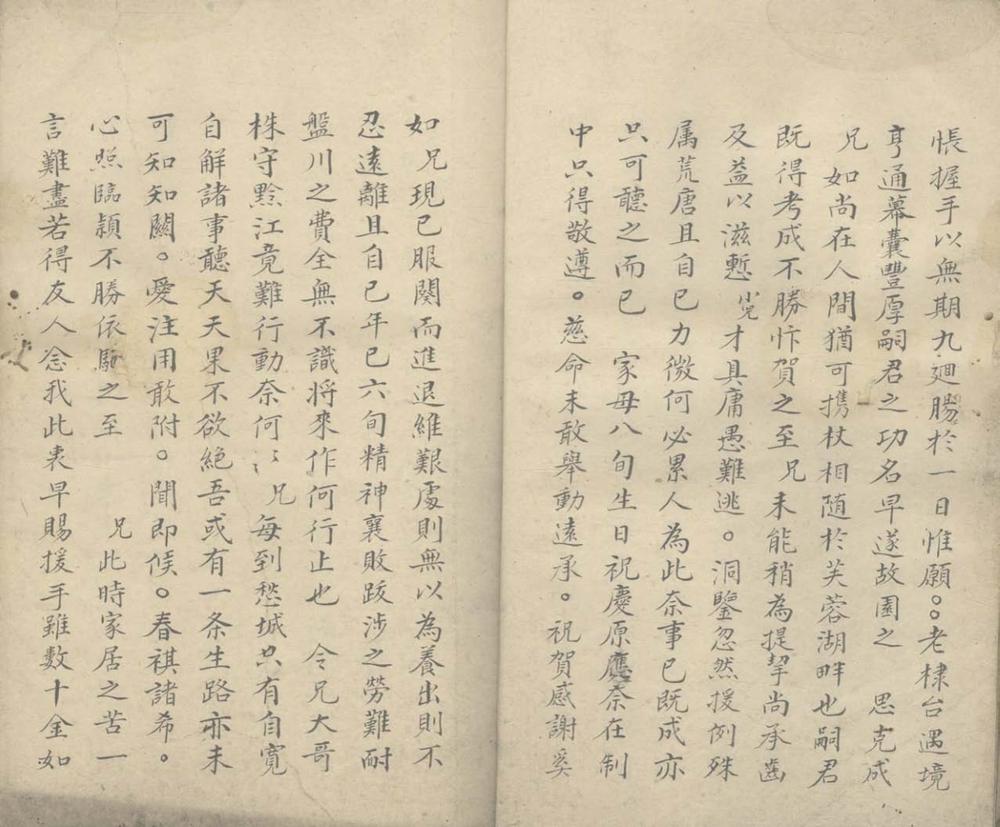 悵握手以無期九廻腸於一日惟願。。老棣台遇境
亨通幕囊豐厚嗣君之功名早遂故園之 思克成
兄 如尚在人間猶可携杖相随於芙蓉湖畔也嗣君
既得考成不勝忭賀之至 兄未能稍為提挈尚承齒
及益以滋慙 小兒才具庸愚難逃。洞鑒忽然援例殊
属荒唐且自已力微何必累人為此奈事已既成亦
只可聽之而已 家母八旬生日祝慶原應奈在制
中只得敬遵。慈命未敢舉動遠承。祝賀感謝奚
如 兄現已服闋而進退維艱處則無以為養出則不
忍遠離且自已年已六旬精神襄敗跋涉之勞難耐
盤川之費全無不識將來作何行止也 令兄大哥
株守黔江竟難行動奈何〻 兄每到愁城只有自寬
自解諸事聽天天果不欲絶吾或有一条生路亦未
可知知關。愛注用敢附。聞即候。春祺諸希。
心照臨頴不勝依馳之至 兄此時家居之苦一
言難盡若得友人念我此衷早賜援手雖数十金如